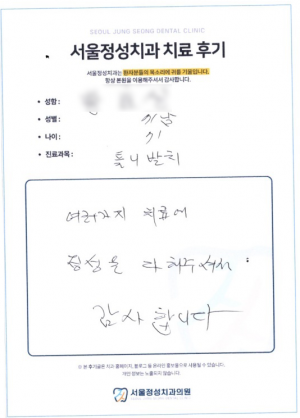 SEOUL JUNG SEONG DENTAL CLINIC
서울정성치과 치료 후기
서울정성치과는 환자분들의 목소리에 귀를 기울입니다.
항상 본원을 이용해주셔서 감사합니다.
• 성함 :
• 성별 :
• 나이 :
• 진료과목 : 틀니 발치
여러가지 치료에
정성을 다해주셔서
감사합니다
※ 본 후기글은 치과 홈페이지, 블로그 등 온라인 홍보물으로 사용될 수 있습니다.
개인 정보는 노출되지 않습니다.
서울정성치과의원